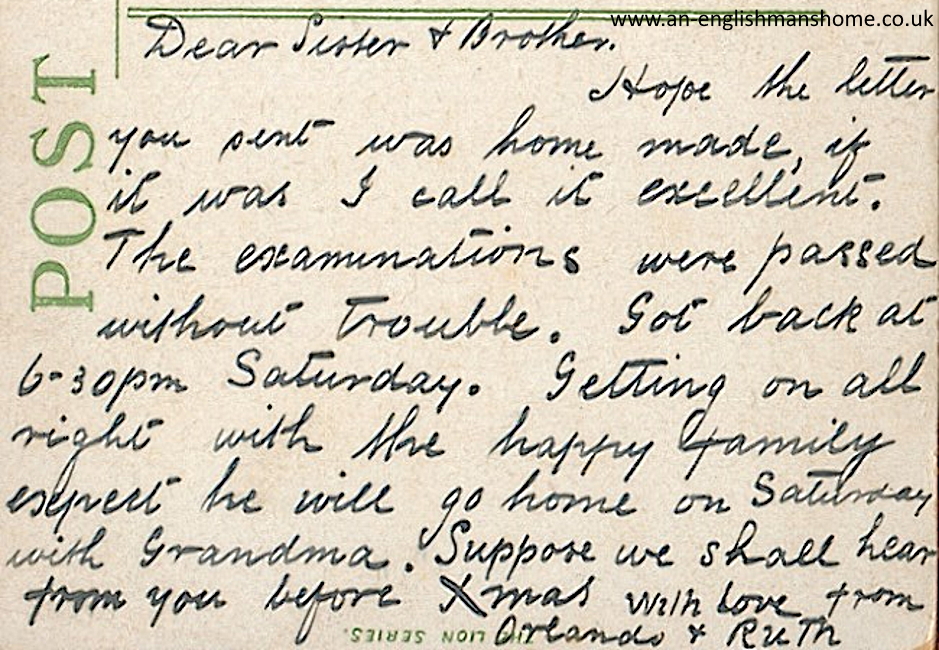 www.an-englishmanshome.co.uk
POST
Dear Sister & Brother.
Hope the letter
you sent was home made, if
it was I call it excellent.
The examinations were passed
without trouble. Got back at
6-30pm Saturday. Getting on all
right with the happy family
expect he will go home on Saturday
with Grandma. Suppose we shall hear
from you before Xmas with love from
Orlando & RUTH
LION SERIES.